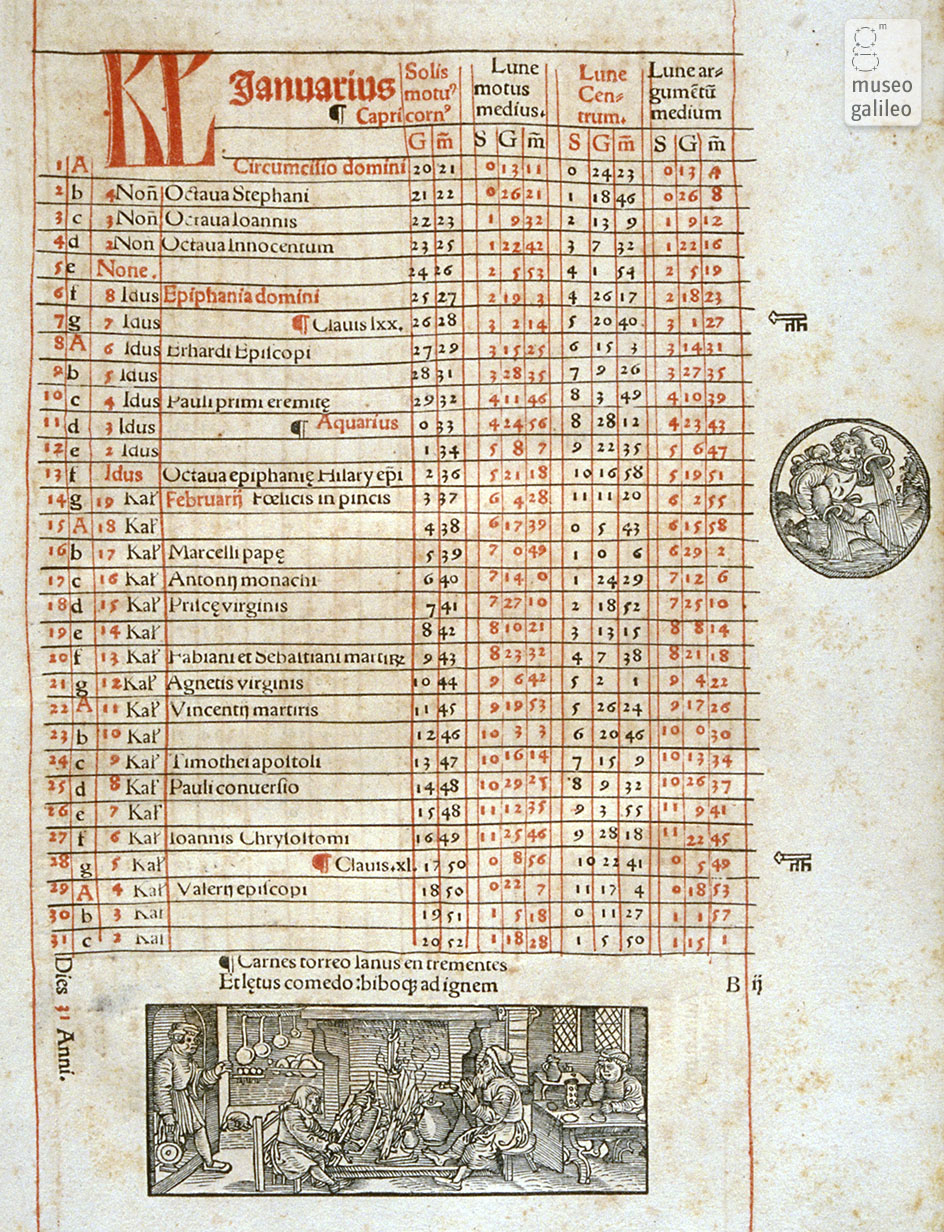 museo
galileo
KL Januarius
¶ Capricorn⁹
Solis motu⁹
Lune motus medius.
Lune Cen⸗trum.
Lune ar⸗gumētū medium
G m̄ S G m̄ S G m̄ S G m̄
1 A Circumcisio domini 20 21 0 13 11 0 24 23 0 13 4
2 b 4 Non̄ Octaua Stephani 21 22 0 26 21 1 18 46 0 26 8
3 c 3 Non̄ Octaua Ioannis 22 23 1 9 32 2 13 9 1 9 12
4 d 2 Non̄ Octaua Innocentum 23 25 1 22 42 3 7 32 1 22 16
5 e None. 24 26 2 5 53 4 1 54 2 5 19
6 f 8 Idus Epiphania domini 25 27 2 19 3 4 26 17 2 18 23
7 g 7 Idus ¶ Clauis lxx. 26 28 3 2 14 5 20 40 3 1 27
8 A 6 Idus Erhardi Episcopi 27 29 3 15 25 6 15 3 3 14 31
9 b 5 Idus 28 31 3 28 35 7 9 26 3 27 35
10 c 4 Idus Pauli primi eremitę 29 32 4 11 46 8 3 49 4 10 39
11 d 3 Idus ¶ Aquarius 0 33 4 24 56 8 28 12 4 23 43
12 e 2 Idus 1 34 5 8 7 9 22 35 5 6 47
13 f Idus Octaua epiphanię Hilary ep̄i 2 36 5 21 18 10 16 58 5 19 51
14 g 19 Kal̃ Februarij Fœlicis in pincis 3 37 6 4 28 11 11 20 6 2 55
15 A 18 Kal̃ 4 38 6 17 39 0 5 43 6 15 58
16 b 17 Kal̃ Marcelli papę 5 39 7 0 49 1 0 6 6 29 2
17 c 16 Kal̃ Antonij monachi 6 40 7 14 0 1 24 29 7 12 6
18 d 15 Kal̃ Priscę virginis 7 41 7 27 10 2 18 52 7 25 10
19 e 14 Kal̃ 8 42 8 10 21 3 13 15 8 8 14
20 f 13 Kal̃ Fabiani et Sebastiani martirꝫ 9 43 8 23 32 4 7 38 8 21 18
21 g 12 Kal̃ Agnetis virginis 10 44 9 6 42 5 2 1 9 4 22
22 A 11 Kal̃ Vincentij martiris 11 45 9 19 53 5 26 24 9 17 26
23 b 10 Kal̃ 12 46 10 3 3 6 20 46 10 0 30
24 c 9 Kal̃ Timothei apostoli 13 47 10 16 14 7 15 9 10 13 34
25 d 8 Kal̃ Pauli conuersio 14 48 10 29 25 8 9 32 10 26 37
26 e 7 Kal̃ 15 48 11 12 35 9 3 55 11 9 41
27 f 6 Kal̃ Ioannis Chrysostomi 16 49 11 25 46 9 28 18 11 22 45
28 g 5 Kal̃ ¶ Clauis.xl. 17 50 0 8 56 10 22 41 0 5 49
29 A 4 Kal̃ Valerij episcopi 18 50 0 22 7 11 17 4 0 18 53
30 b 3 Kal 19 51 1 5 18 0 11 27 1 1 57
31 c 2 Kal 20 52 1 18 28 1 5 50 1 15 1
¶ Carnes torreo Ianus en trementes
Et lętus comedo: biboqꝫ ad ignem
B ij
Dies 31 Anni.